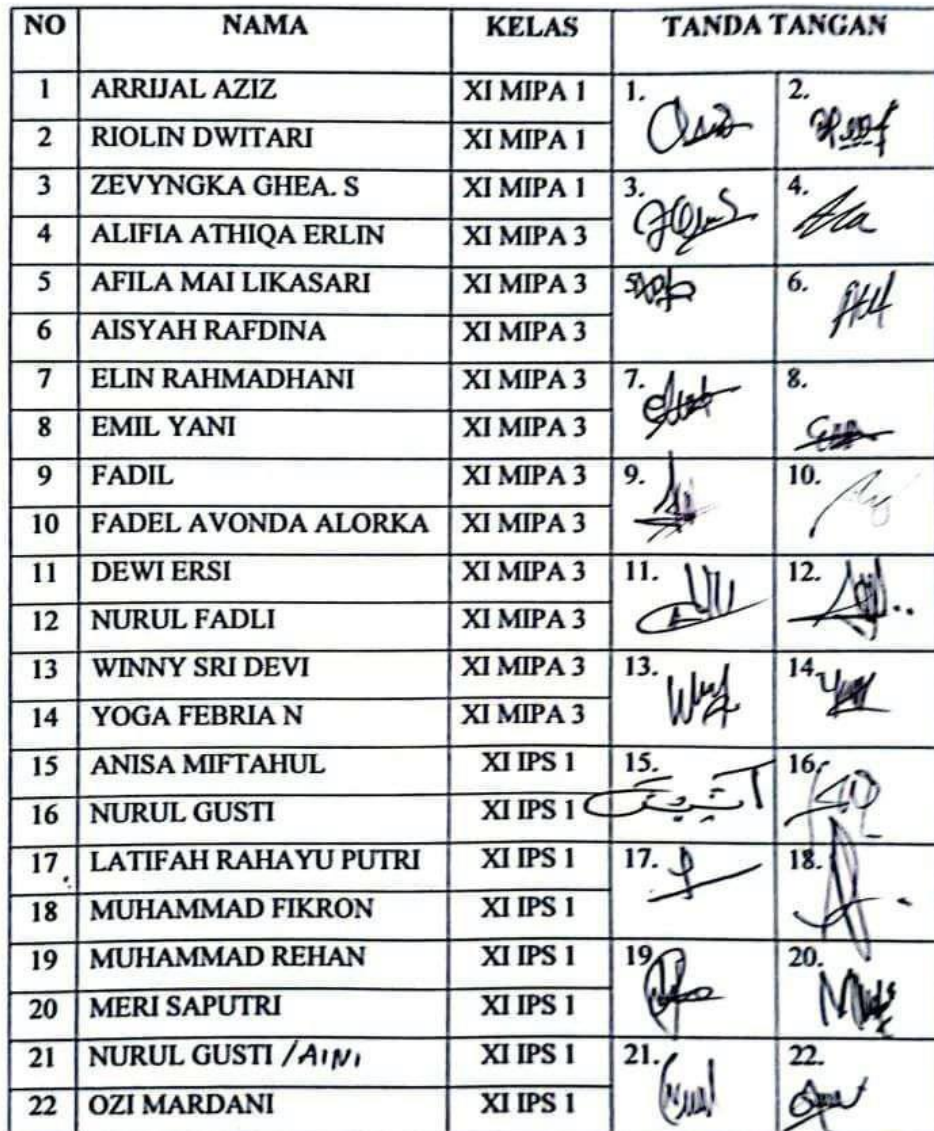 NO NAMA KELAS TANDA TANGAN
1 ARRIJAL AZIZ XI MIPA 1 1. 2.
2 RIOLIN DWITARI XI MIPA 1
3 ZEVYNGKA GHEA. S XI MIPA 1 3. 4.
4 ALIFIA ATHIQA ERLIN XI MIPA 3
5 AFILA MAI LIKASARI XI MIPA 3 5. 6.
6 AISYAH RAFDINA XI MIPA 3
7 ELIN RAHMADHANI XI MIPA 3 7. 8.
8 EMIL YANI XI MIPA 3
9 FADIL XI MIPA 3 9. 10.
10 FADEL AVONDA ALORKA XI MIPA 3
11 DEWI ERSI XI MIPA 3 11. 12.
12 NURUL FADLI XI MIPA 3
13 WINNY SRI DEVI XI MIPA 3 13. 14.
14 YOGA FEBRIA N XI MIPA 3
15 ANISA MIFTAHUL XI IPS 1 15. 16.
16 NURUL GUSTI XI IPS 1
17 LATIFAH RAHAYU PUTRI XI IPS 1 17. 18.
18 MUHAMMAD FIKRON XI IPS 1
19 MUHAMMAD REHAN XI IPS 1 19. 20.
20 MERI SAPUTRI XI IPS 1
21 NURUL GUSTI /AINI XI IPS 1 21. 22.
22 OZI MARDANI XI IPS 1